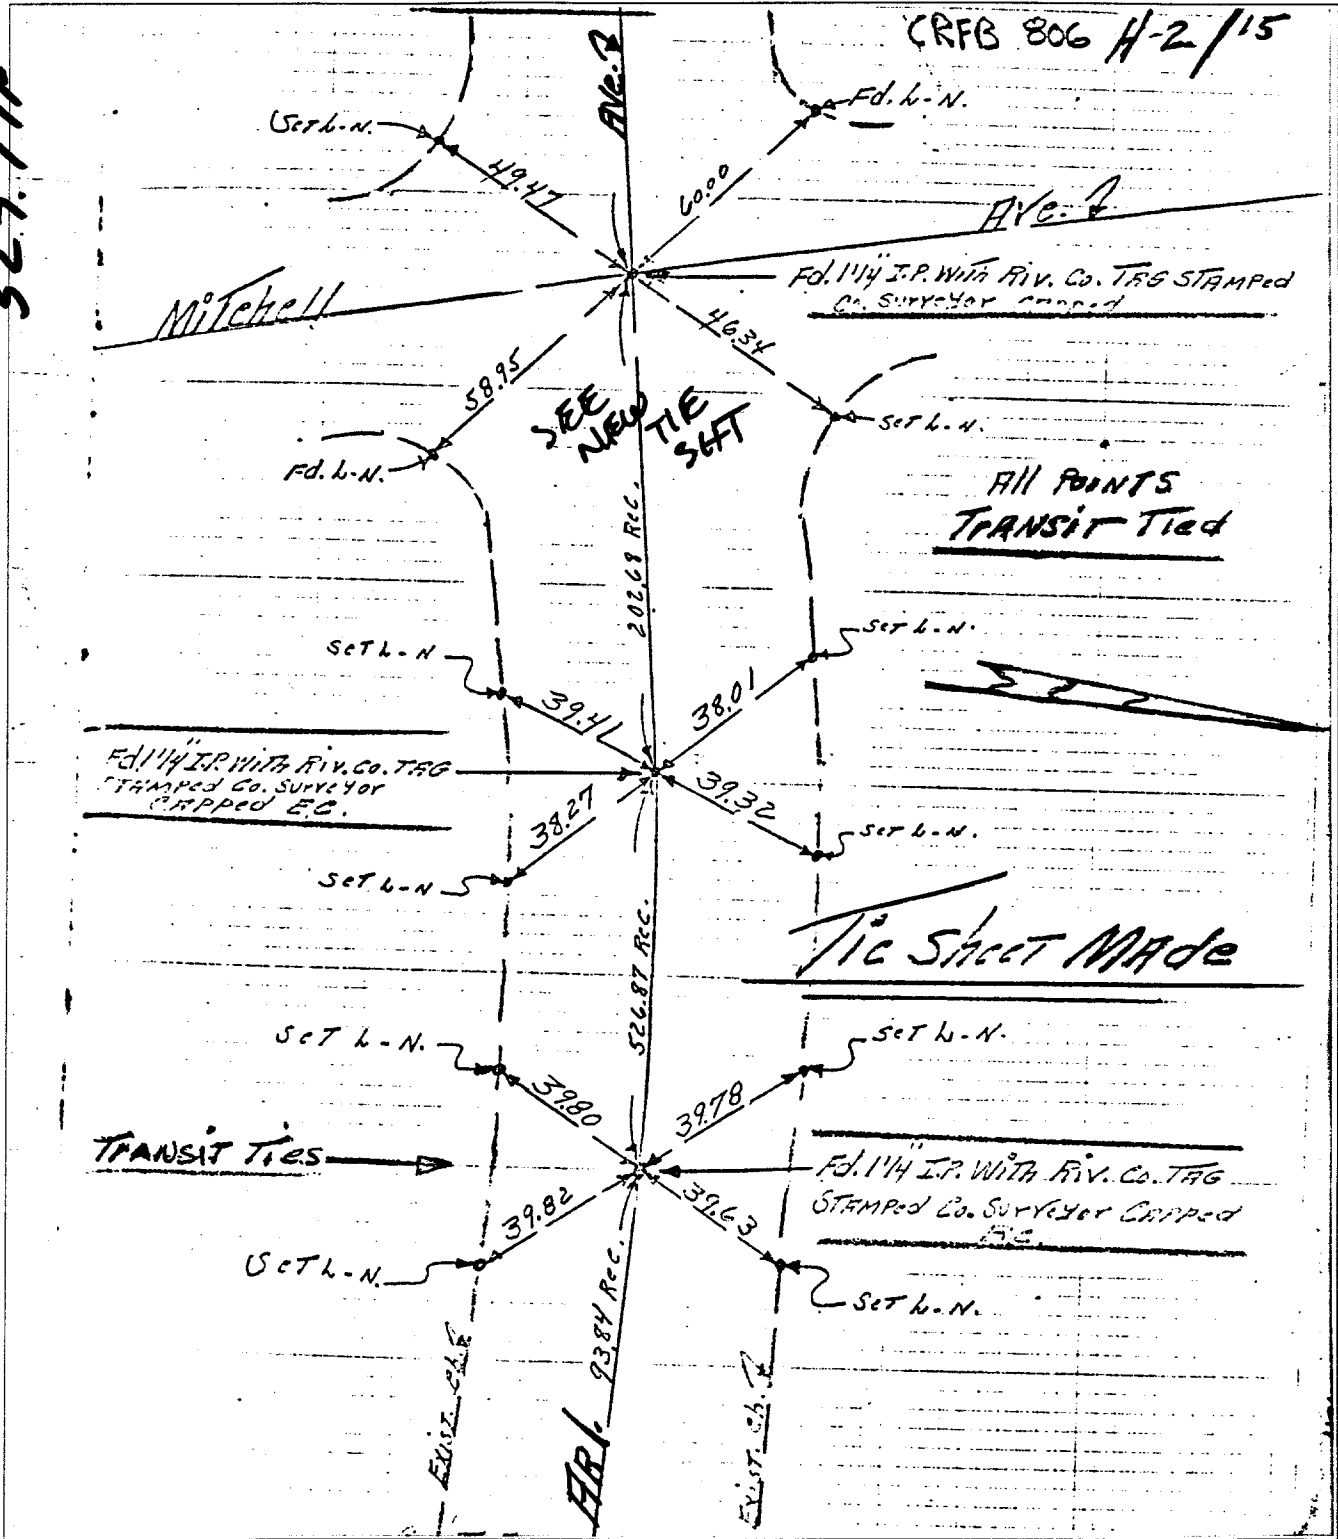 CRFB 806 H-2/15
Ave.
Fd. L-N.
Set L-N.
49.47
60.00
Ave.
Mitchell
Fd. 1¼" I.P. With Riv. Co. TAG STAMPed
Co. Surveyor capped
46.34
58.95
SEE
NEW TIE
SHT
Set L-N.
Fd. L-N.
All POINTS
TRANSIT Tied
202.68 Rec.
Set L-N.
Set L-N
39.41
38.01
Fd. 1¼" I.P. With Riv. Co. TAG
STAMPed Co. Surveyor
CAPPed E.C.
39.32
38.27
Set L-N.
Set L-N
526.87 Rec.
Tie Sheet MAde
Set L-N.
Set L-N.
39.80
39.78
TRANSIT Ties
Fd. 1¼" I.P. With Riv. Co. TAG
STAMPed Co. Surveyor CAPPed
39.82
39.63
Set L-N.
Set L-N.
93.84 Rec.
Exist. Ch.
Exist. Ch.
ARL.